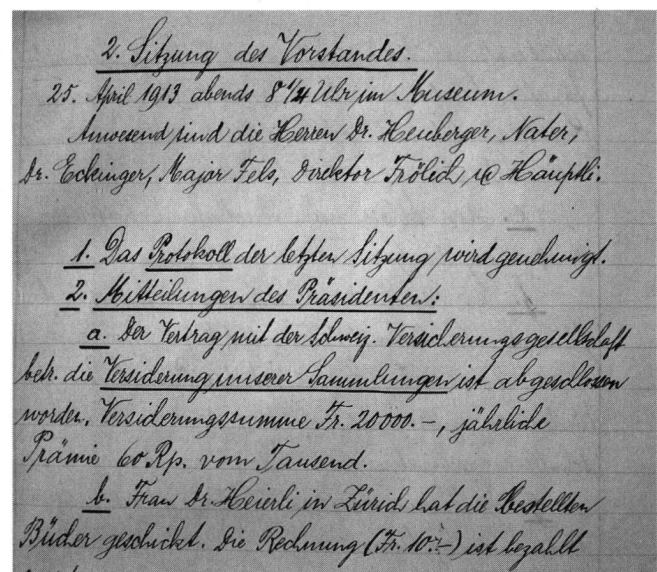 2. Sitzung des Vorstandes.
25. April 1913 abends 8 1/4 Uhr im Museum.
Anwesend sind die Herren Dr. Heuberger, Nater,
Dr. Eckinger, Major Fels, Direktor Frölich, & Häuptli.
1. Das Protokoll der letzten Sitzung wird genehmigt.
2. Mitteilungen des Präsidenten:
a. Der Vertrag mit der Schweiz. Versicherungsgesellschaft
betr. die Versicherung unserer Sammlungen ist abgeschlossen
worden. Versicherungssumme Fr. 20000.–, jährliche
Prämie 60 Rp. vom Tausend.
b. Frau Dr. Heierli in Zürich hat die bestellten
Bücher geschickt. Die Rechnung (Fr. 10.–) ist bezahlt